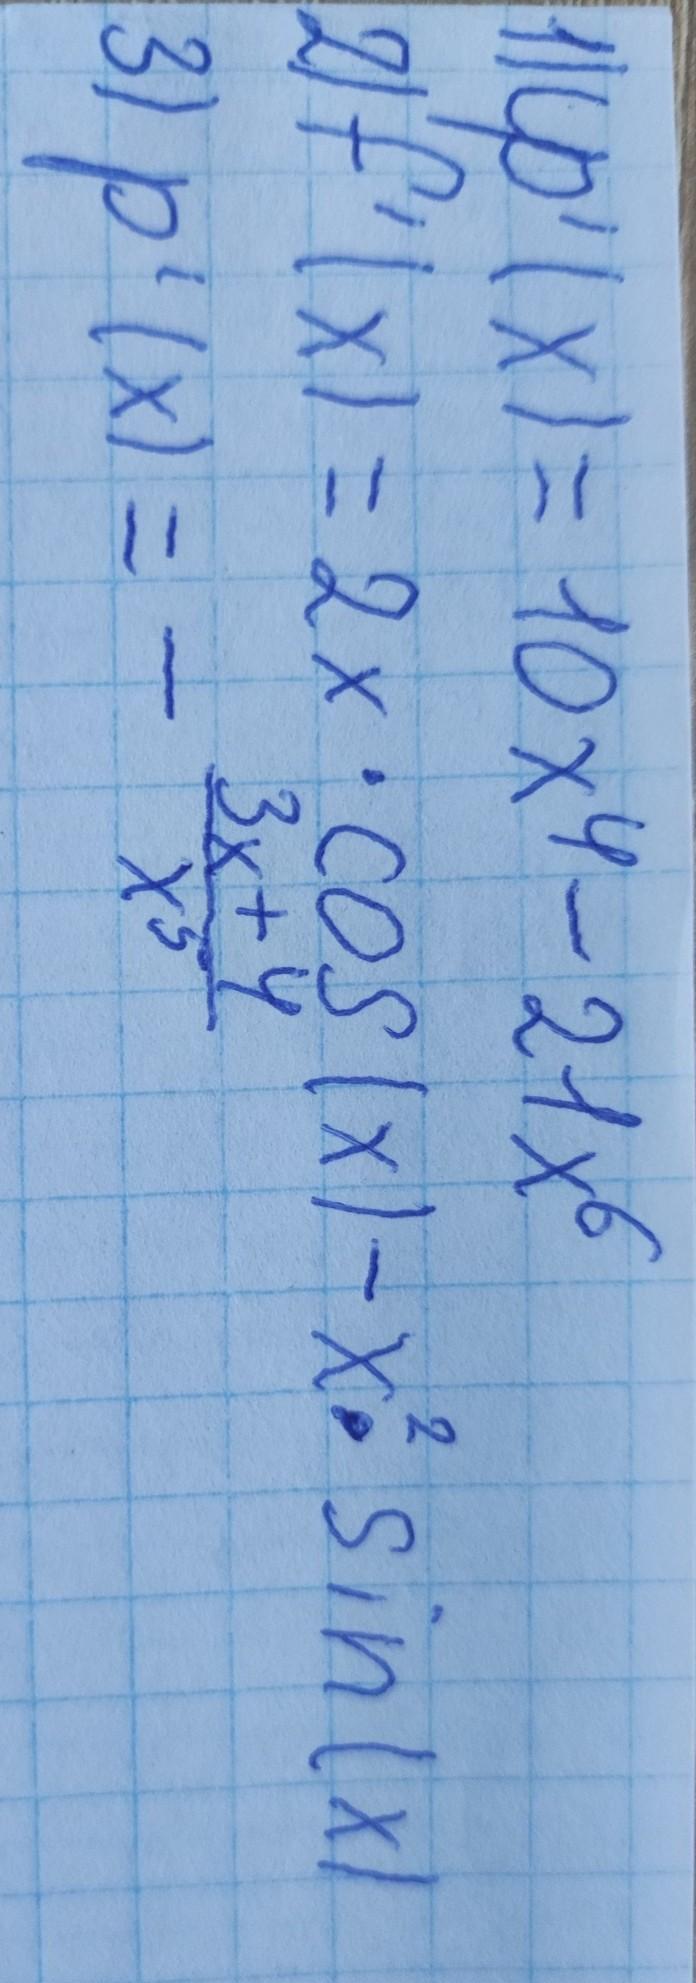 1) φ'(x) = 10x⁴ - 21x⁶
2) f'(x) = 2x · cos(x) - x² · sin(x)
3) p'(x) = - (3x+4)/x⁵